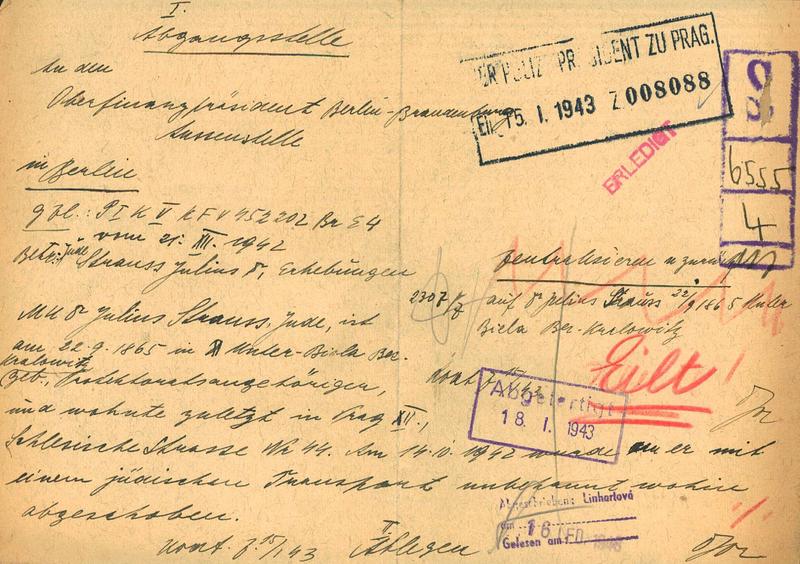 I.
Abgangsstelle
An den
Oberfinanzpräsident Berlin-Brandenburg
Aussenstelle
in Berlin
DER POLIZEIPRÄSIDENT ZU PRAG.
Ein. 15. I. 1943 Z. 008088
ERLEDIGT
6555
4
gzl.: P I K V
452202 Br E4
vom 21. XII. 1942
Betr.: Jude Strauss Julius Dr, Erhebungen
zentralisieren u
2307/
auf Dr Julius Strauss 22/9 1865 Unter
Biela Bez. Kralowitz
Eilt!
MU Dr Julius Strauss, Jude, ist
am 22.9.1865 in Unter-Biela Bez.
Kralowitz
geb., Protektoratsangehöriger,
und wohnte zuletzt in Prag XII.,
Schlesische Strasse Nr 44. Am 14. 1942 wurde er mit
einem jüdischen Transport unbekannt wohin
abgeschoben.
Abgefertigt
18. I. 1943
Abgeschrieben: Linhartová
am 16
Gelesen am:
II
Ablegen